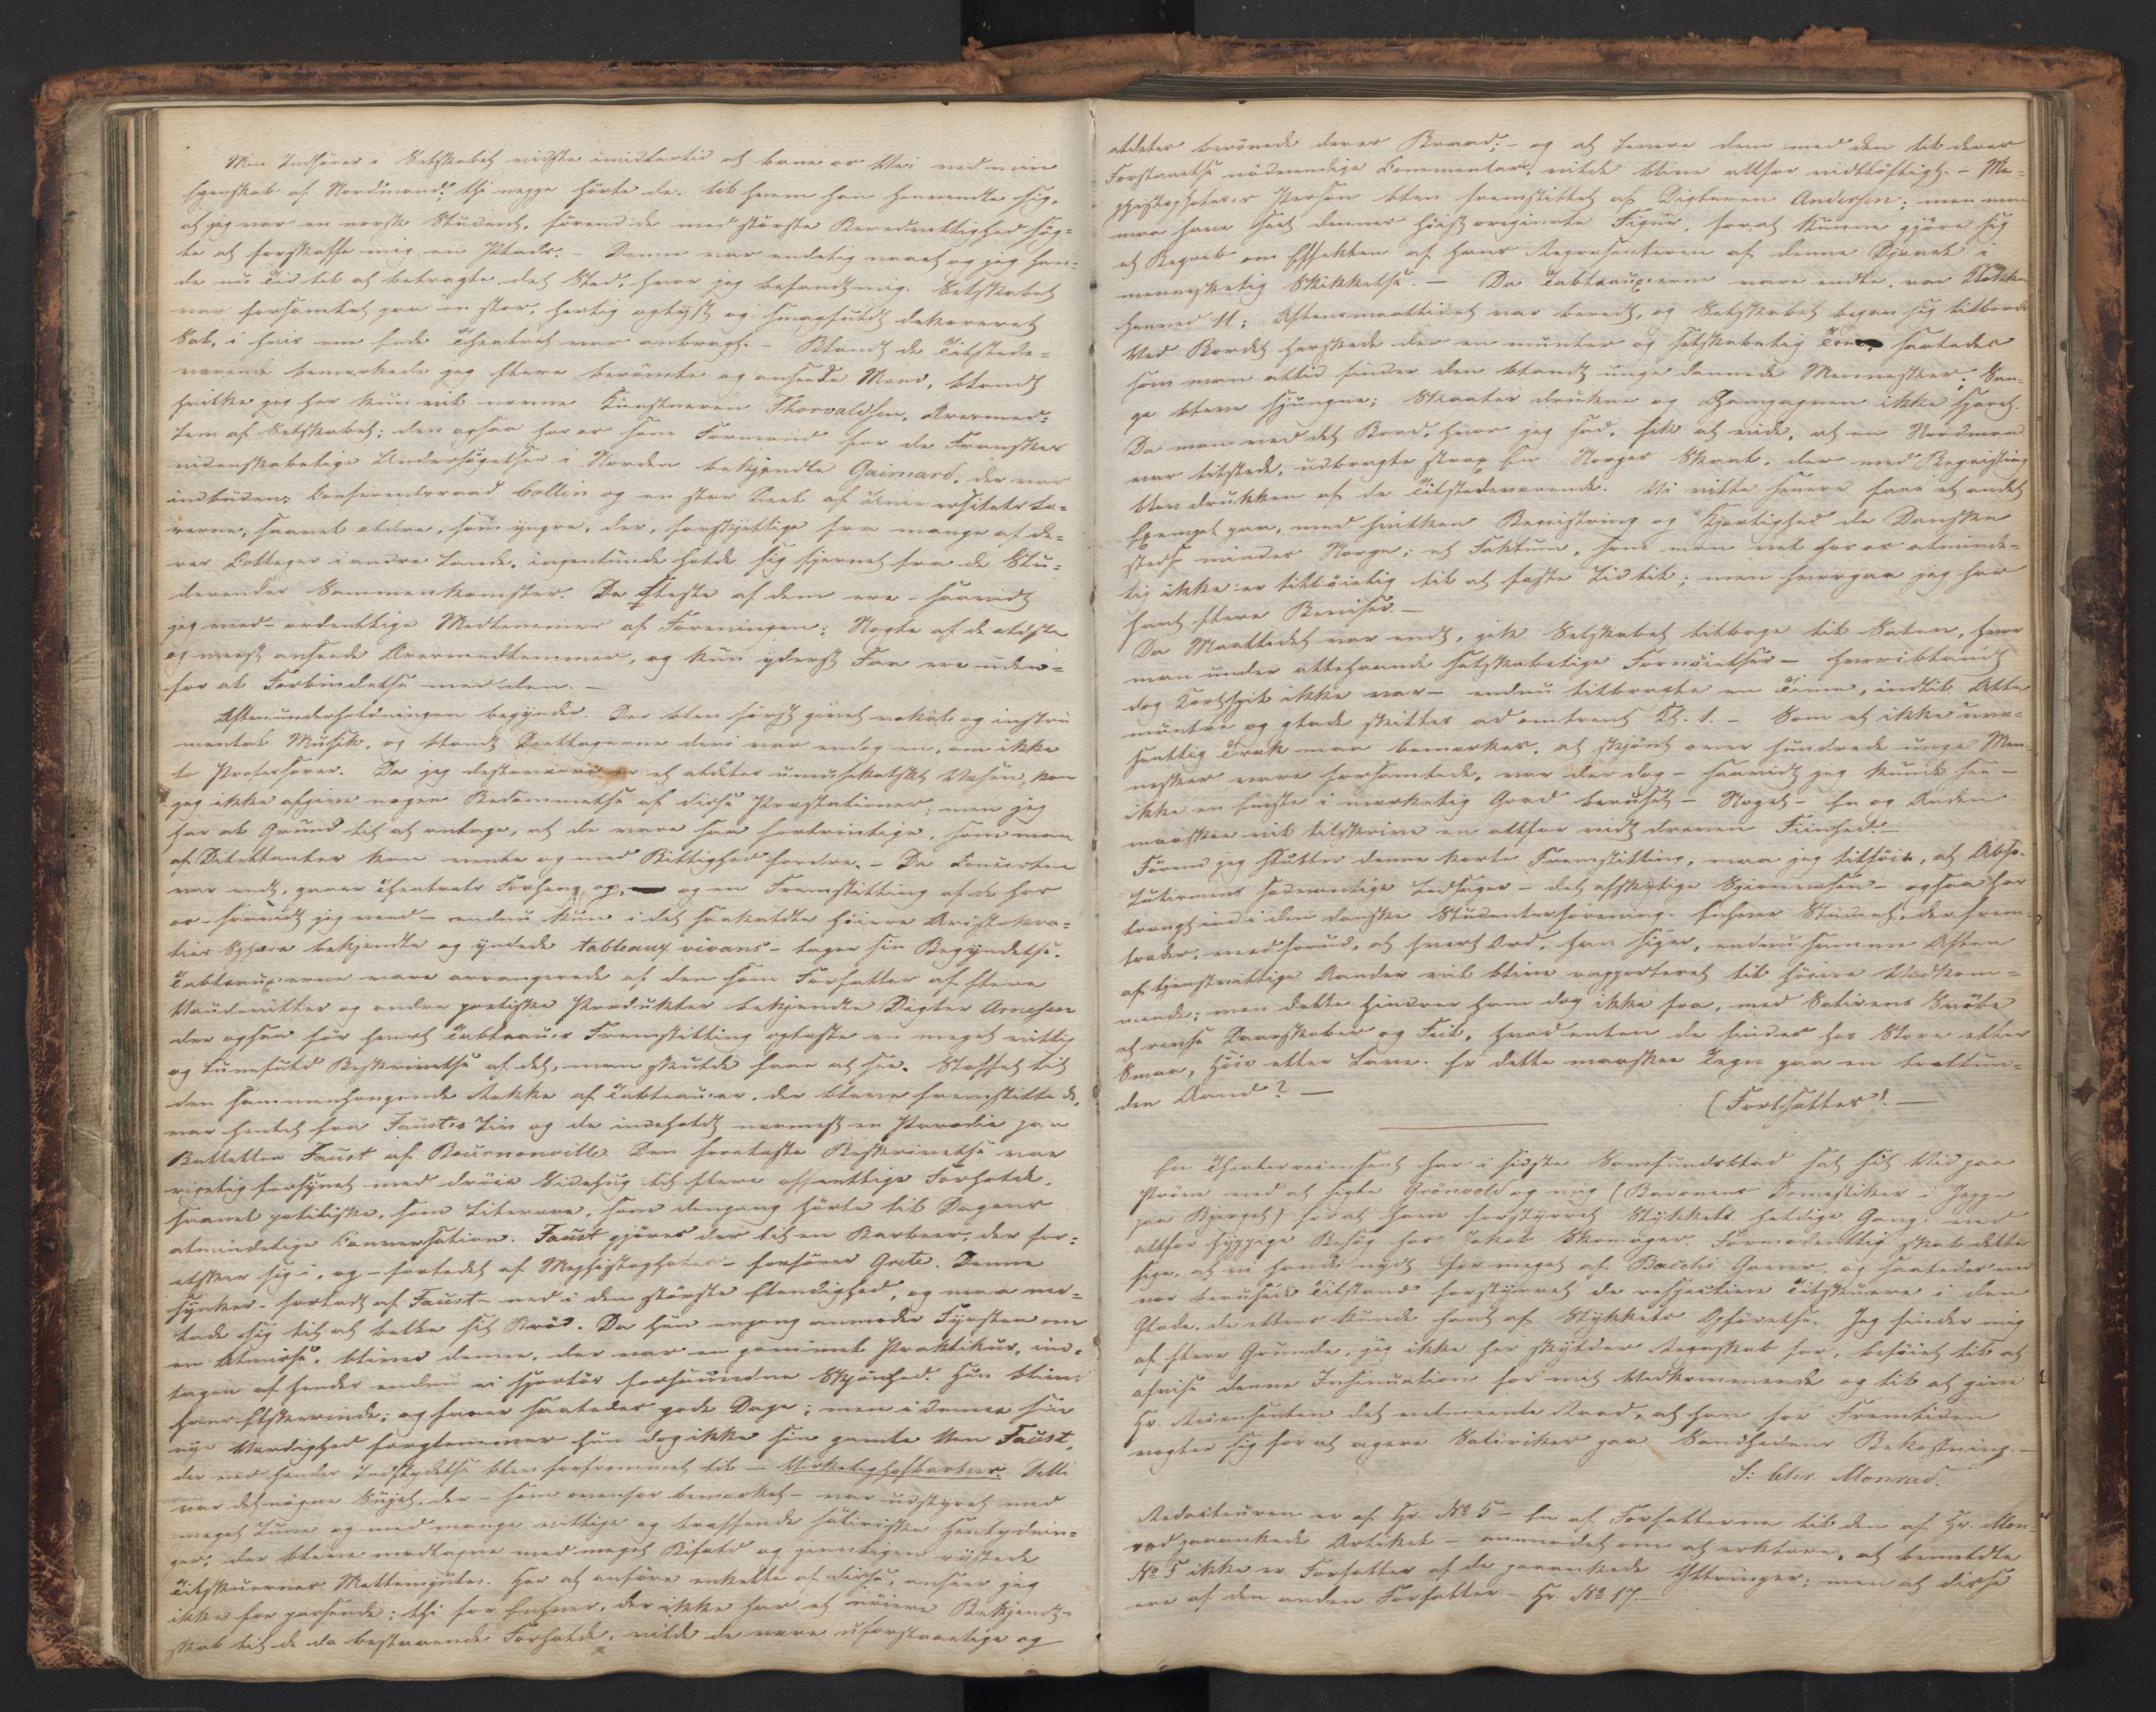 Min Indfører i Selskabet vidste imidlertid at bane os Vei ved min
Egenskab af Nordmand; thi neppe hørte de, til hvem han henvendte sig,
at jeg var en norsk Student, førend de med største Beredvillighed søg-
te at forskaffe mig en Plads. – Denne var endelig naaet og jeg hav-
de nu Tid til at betragte det Sted, hvor jeg befandt mig. Selskabet
var forsamlet paa en stor, herlig oplyst og smagfuldt dekoreret
Sal, i hvis ene Ende Theatret var anbragt. – Blandt de Tilstede-
værende bemærkede jeg flere berømte og ansete Mænd, blandt
hvilke jeg her kun vil nævne Kunstneren Thorvaldsen, Æresmed-
lem af Selskabet; den ogsaa hos os som Formand for de Franskes
videnskabelige Undersøgelser i Norden bekjendte Gaimard, der var
indbuden; Conferentsraad Collin og en stor Deel af Universitetslæ-
rerne, saavel ældre, som yngre, der, forskjellige fra mange af de-
res Colleger i andre Lande, ingenlunde holde sig fjernet fra de Stu-
derendes Sammenkomster. De fleste af dem ere – saavidt
jeg veed – ordentlige Medlemmer af Foreningen; Nogle af de ældste
og meest ansete Æresmedlemmer, og kun yderst Faa ere uden-
for al Forbindelse med den. –
Aftenunderholdningen begynder. Der blev først givet vokal og instru
mental Musik, og blandt Deeltagerne deri var endog en, om ikke
to Professorer. Da jeg desværre er et aldeles umusikalsk Væsen, kan
jeg ikke afgive nogen Bedømmelse af disse Præstationer; men jeg
har al Grund til at antage, at de vare saa fortrinlige, som man
af Dilettanter kan vente og med Billighed fordre. – Da Concerten
var endt, gaaer Theatrets Forhæng op, og en Fremstilling af de hos
os – saavidt jeg veed – endnu kun i det saakaldte høiere Aristokra-
ties Sphære bekjendte og yndede tableaux vivans – tager sin Begyndelse.
Tableauxerne vare arrangerede af den som Forfatter af flere
Vaudeviller og andre poetiske Produkter bekjendte Digter Arnesen
der ogsaa før hvert Tableaus Fremstilling oplæste en meget vittig
og lunefuld Beskrivelse af det, man skulde faae at see. Stoffet til
den sammenhængende Række af Tableauer, der bleve fremstillede,
var hentet fra Faust's Liv og de indeholdt nærmest en Parodie paa
Balletten Faust af Bournonville. Den foreløste Beskrivelse var
rigelig forsynet med drøie Sidehug til flere offentlige Forholde,
saavel politiske, som literære, som dengang hørte til Dagens
almindelige Conversation. Faust gjøres der til en Barbeer, der for-
elsker sig i, og – forledet af Mephistopholes – forfører Grete. Denne
synker – forladt af Faust – ned i den største Elendighed, og maa ned-
lade sig til at betle sit Brød. Da hun engang anmoder Fyrsten om
en Almisse, bliver denne, der var en gammel Praktikus, ind-
tagen af hendes endnu ei sporløs forsvundne Skjønhed. Hun bliver
hans Elskerinde; og faaer saaledes gode Dage; men i denne sin
nye Værdighed forglemmer hun dog ikke sin gamle Ven Faust,
der ved hendes Indflydelse blev forfremmet til – Virkelig Hofbarbeer. Dette
var det nøgne Sujet, der – som ovenfor bemærket – var udstyret med
meget Lune og med mange vittige og træffende satiriske Hentydnin-
ger; der bleve modtagne med meget Bifald og gjennemgaaende rystede
Tilskuernes Mellemgulve. Her at anføre enkelte af disse, anseer jeg
ikke for passende; thi for Enhver, der ikke har et nøiere Bekjendt-
skab til de da bestaaende Forholde, vilde de være uforstaaelige og
aldeles berøvede deres Braad; – og at levere dem med den til deres
Forstaaelse nødvendige Commentar, vilde blive altfor vidtløftigt. – Me-
phistopholes's Person blev fremstillet af Digteren Andersen; men man
maa have seet dennes høist originale Figur, forat kunne gjøre sig
et Begreb om Effekten af hans Repræsenteren af denne Djævel i
menneskelig Skikkelse. – Da Tableauxerne vare endte, var Klokken
henved 11; Aftensmaaltidet var beredt, og Selskabet begav sig tilbords
Ved Bordet herskede der en munter og selskabelig Tone, saaledes
som man altid finder den blandt unge dannede Mennesker. San-
ge bleve sjungne; Skaaler drukne og Champagnen ikke sparet.
Da man ved det Bord, hvor jeg sad, fik at vide, at en Nordmand
var tilstede, udbragte strax En Norges Skaal, der med Begeistring
blev drukken af de Tilstedeværende. Vi ville senere faae et andet
Exempel paa, med hvilken Begeistring og Hjertelighed de Danske
stedse mindes Norge; et Faktum, som man vel hos os alminde-
lig ikke er tilbøielig til at fæste Lid til; men hvorpaa jeg har
havt flere Beviser. –
Da Maaltidet var endt, gik Selskabet tilbage til Salen, hvor
man under allehaande selskabelige Fornøielser – hvoriblandt
dog Kortspil ikke var – endnu tilbragte en Time, indtil Alle
muntre og glade skiltes ad omtrent Kl. 1. – Som et ikke uvæ-
sentlig Træk maa bemærkes, at skjønt over hundrede unge Men-
nesker vare forsamlede, var der dog – saavidt jeg kunde see –
ikke en Eneste i mærkelig Grad beruset – Noget – En og Anden
maaskee vil tilskrive en altfor vidt dreven Fiinhed. –
Førend jeg slutter denne korte Fremstilling, maa jeg tilføie, at Abso-
lutismens sædvanlige Ledsager – det afskyelige Spionvæsen – ogsaa har
trængt ind i den danske Studenterforening. Enhver Student, der frem-
træder, veed forud, at hvert Ord, han siger, endnu samme Aften
af tjenstvillige Aander vil blive rapporteret til høiere Vedkom-
mende; men dette hindrer ham dog ikke fra, med Satirens Svøbe
at revse Daarskaber og Feil, hvadenten de findes hos Store eller
Smaa, Høie eller Lave. Er dette maaskee Tegn paa en trællun-
den Aand? –
(Fortsættes). –
En Theaterrecensent har i sidste Samfundsblad sat sit Vid paa
Prøve ved at sigte Grönvold og mig (Baronens Domestiker i Jeppe
paa Bjerget) for at have forstyrret Stykkets heldige Gang ved
altfor hyppige Besøg hos Jakob Skomager. Formodentlig skal dette
sige, at vi havde nydt for meget af Bacchi Gaver, og saaledes ved
vor berusede Tilstand forstyrret de respective Tilskuere i den
Glæde, de ellers kunde havt af Stykkets Opførelse. Jeg finder mig
af flere Grunde, jeg ikke her skylder Regnskab for, beføiet til at
afvise denne Insinuation for mit Vedkommende og til at give
Hr. Recensenten det velmeente Raad, at han for Fremtiden
vogter sig for at agere Satiriker paa Sandhedens Bekostning. –
S: Chr. Monrad.
Redacteuren er af Hr. No 5 – En af Forfatterne til den af Hr. Mon-
rad paaankede Artikel – anmodet om at erklære, at bemeldte
No 5 ikke er Forfatter af de paaankede Yttringer; men at disse
ere af den anden Forfatter – Hr. No 17. –